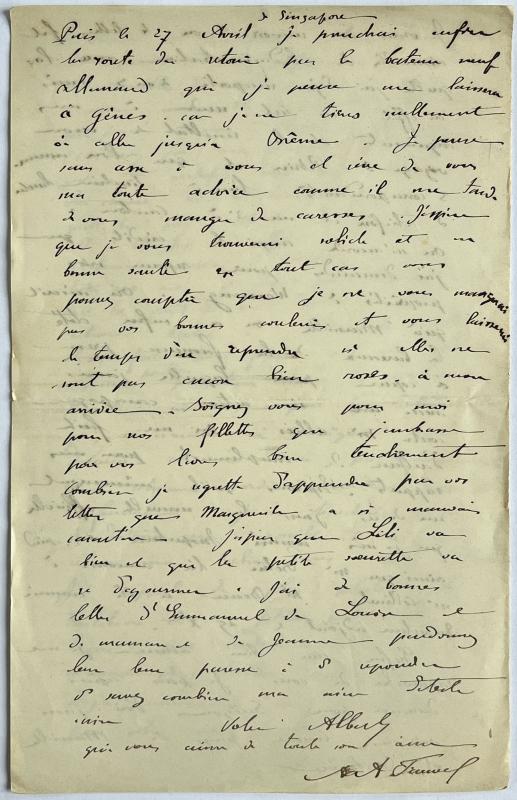 à Singapore
Puis le 27 Avril je prendrai enfin
la route du retour par le bateau neuf
allemand qui je pense me laissera
à Gênes. car je ne tiens nullement
à aller jusqu'à Brême. Je pense
sans cesse à vous et rêve de vous
ma toute adorée comme il me tarde
de vous manger de caresses. J'espère
que je vous trouverai solide et en
bonne santé en tout cas vous
pouvez compter que je ne vous mangerai
pas vos bonnes couleurs et vous laisserai
le temps d'en reprendre si elles ne
sont pas encore bien roses. à mon
arrivée. Soignez vous pour moi
pour nos fillettes que j'embrasse
pour vos lèvres bien tendrement
Combien je regrette d'apprendre par vos
lettres que Marguerite a si mauvais
caractère j'espère que Lili va
bien et que la petite sœurette va
se . J'ai de bonnes
lettres d'Emmanuel de Louise et
de maman et de Jeanne pardonnez
leur leur paresse à répondre
savez combien ma aimée
Votre Albert
qui vous aime de toute son âme
A